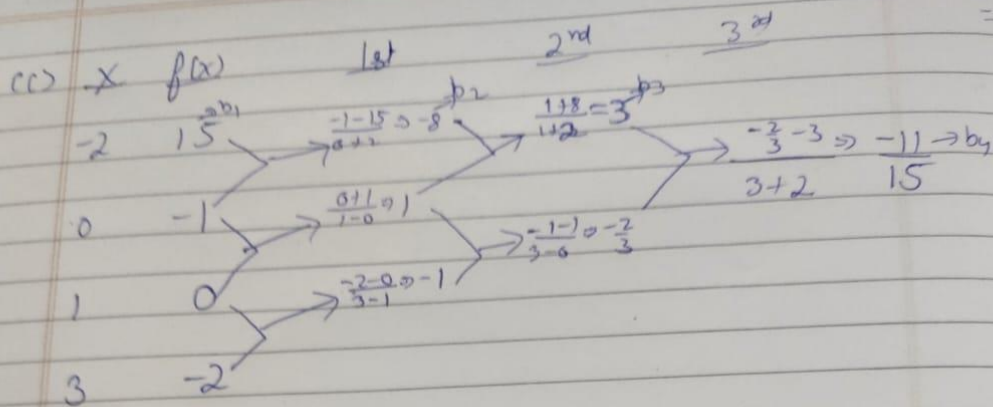 (c) x f(x) 1st 2nd 3rd
-2 15 → b1 (-1-15)/(0+2) ⇒ -8 → b2 (1+8)/(1+2) = 3 → b3 (-2/3 - 3)/(3+2) ⇒ -11/15 → b4
0 -1 (0+1)/(1-0) ⇒ 1 (-1-1)/(3-0) ⇒ -2/3
1 0 (-2-0)/(3-1) ⇒ -1
3 -2